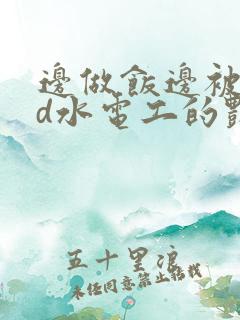 邊做飯邊被
d水電工的
五十里浪
未经同意禁止转载